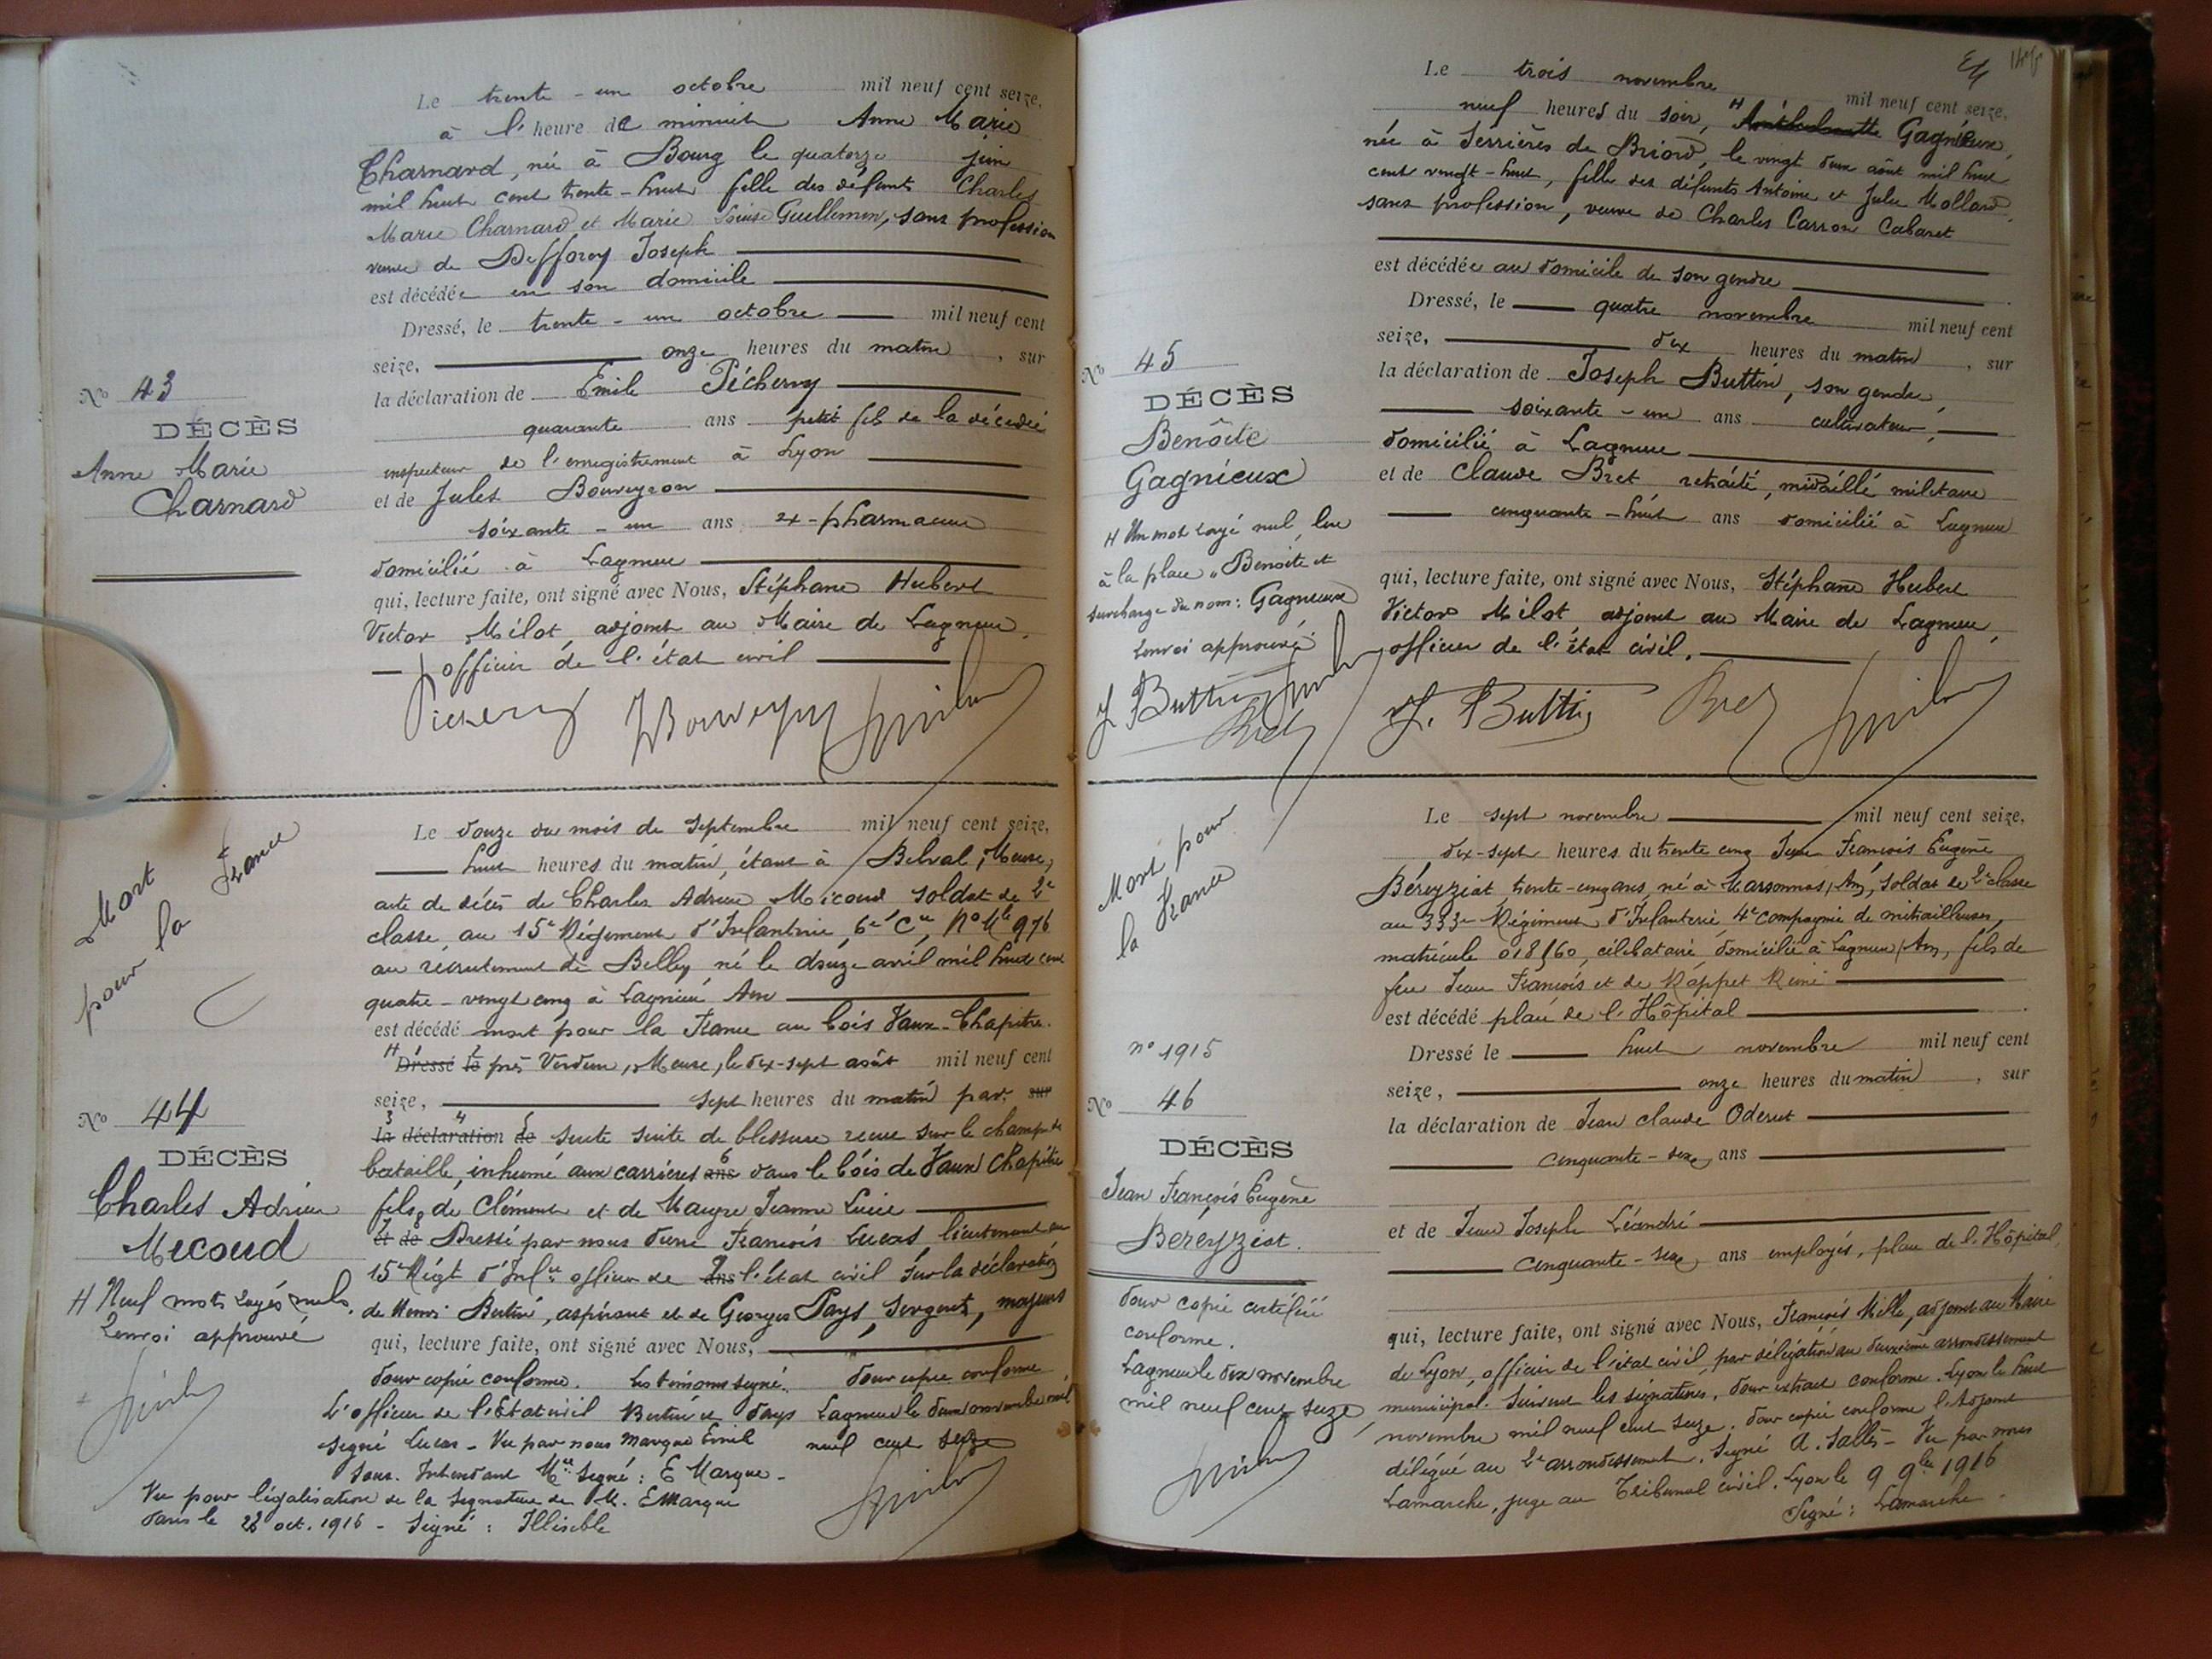 Le trente-un octobre mil neuf cent seize,
à l'heure de minuit Anne Marie
Charnard, née à Bourg le quatorze juin
mil huit cent trente-huit fille des défunts Charles
Marie Charnard et Marie Louise Guillemin, sans profession
veuve de Defforey Joseph
est décédée en son domicile
Dressé, le trente-un octobre mil neuf cent
seize, onze heures du matin, sur
la déclaration de Emile Pécherey
quarante ans petit fils de la décédée
inspecteur de l'enregistrement à Lyon
et de Jules Bouveyron
soixante-un ans ex-pharmacien
domicilié à Lagnieu
qui, lecture faite, ont signé avec Nous, Stéphane Hubert
Victor Milot, adjoint au Maire de Lagnieu,
officier de l'état civil
No 43
DÉCÈS
Anne Marie
Charnard
Le douze du mois de Septembre mil neuf cent seize,
huit heures du matin, étant à Belval, Meuse,
acte de décès de Charles Adrien Micoud soldat de 2e
classe au 15e Régiment d'Infanterie, 6e Cie, No Mle 976
au recrutement de Belley né le douze avril mil huit cent
quatre-vingt cinq à Lagnieu Ain
est décédé mort pour la France au bois Vaux-Chapitre
H Dressé le près Verdun, Meuse, le dix-sept août mil neuf cent
seize, sept heures du matin par sur
la déclaration de suite suite de blessure reçue sur le champ de
bataille, inhumé aux carrières ans dans le bois de Vaux Chapitre
fils de Clément et de Maigre Jeanne Lucie
Et de Dressé par nous François Lucas lieutenant au
15e Régt d'Infie officier de ans l'état civil sur la déclaration
de Henri Bertin, aspirant et de Georges Pays, Sergent, majeurs
qui, lecture faite, ont signé avec Nous,
Pour copie conforme. Les témoins signé. Pour copie conforme
L'officier de l'Etat civil Bertin et Pays Lagnieu le novembre mil
Signé Lucas - Vu par nous Marque Emile neuf cent seize
Sous. Intendant Mre Signé: E Marque -
Vu pour légalisation de la signature de M. E Marque
Paris le 28 oct. 1916 - Signé: Illisible
Mort
pour la France
No 44
DÉCÈS
Charles Adrien
Micoud
H Neuf mots rayés nuls.
Renvoi approuvé
Le trois novembre mil neuf cent seize,
neuf heures du soir, H Gagnieux,
née à Serrières de Briord, le vingt deux août mil huit
cent vingt-huit, fille des défunts Antoine et Julie Mollard
sans profession, veuve de Charles Carron Cabaret
est décédée au domicile de son gendre
Dressé, le quatre novembre mil neuf cent
seize, dix heures du matin, sur
la déclaration de Joseph Buttin, son gendre,
soixante-un ans cultivateur,
domicilié à Lagnieu
et de Claude Bret retraité, médaillé militaire
cinquante-huit ans domicilié à Lagnieu
qui, lecture faite, ont signé avec Nous, Stéphane Hubert
Victor Milot, adjoint au Maire de Lagnieu,
officier de l'état civil.
J. Buttin Bret
No 45
DÉCÈS
Benoîte
Gagnieux
H Un mot rayé nul, lire
à la place "Benoîte et
surcharge du nom: Gagnieux
Renvoi approuvé.
J Buttin
Bret
Le sept novembre mil neuf cent seize,
dix-sept heures du trente cinq Jean François Eugène
Béreyziat, trente-cinq ans, né à Marsonnas (Ain), soldat de 2e classe
au 333e Régiment d'Infanterie, 4e compagnie de mitrailleuses,
matricule 018160, célibataire, domicilié à Lagnieu (Ain), fils de
feu Jean François et de Rappet Reine
est décédé place de l'Hôpital
Dressé le huit novembre mil neuf cent
seize, onze heures du matin, sur
la déclaration de Jean Claude Oderut
cinquante-six ans
et de Jean Joseph Léandré
cinquante-six ans employés, place de l'Hôpital,
qui, lecture faite, ont signé avec Nous, François Mille, adjoint au Maire
de Lyon, officier de l'état civil, par délégation au deuxième arrondissement
municipal. Suivent les signatures. Pour extrait conforme. Lyon le huit
novembre mil neuf cent seize. Pour copie conforme l'Adjoint
délégué au 2e arrondissement. Signé A. Sallès - Vu par nous
Lamarche, juge au Tribunal civil. Lyon le 9 9bre 1916
Signé: Lamarche
Mort pour
la France
no 1915
No 46
DÉCÈS
Jean François Eugène
Béreyziat.
Pour copie certifiée
conforme.
Lagnieu le dix novembre
mil neuf cent seize